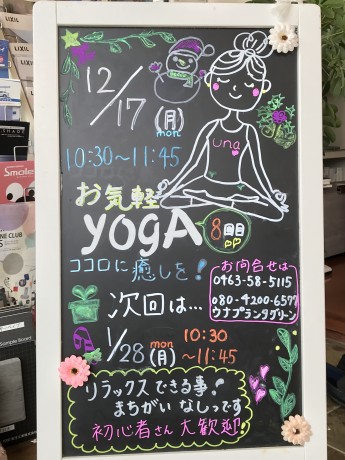 12/17(月)
mon
10:30〜11:45
una
お気軽
yogA
8回目
ココロに癒しを!
お問合せは
0463-58-5115
080-4200-6577
ウナプランタグリーン
次回は…
1/28(月)
mon
10:30
〜11:45
リラックスできる事!
まちがいなしっです
初心者さん大歓迎!
LIXIL
LIXIL
Smoles
Sample Board